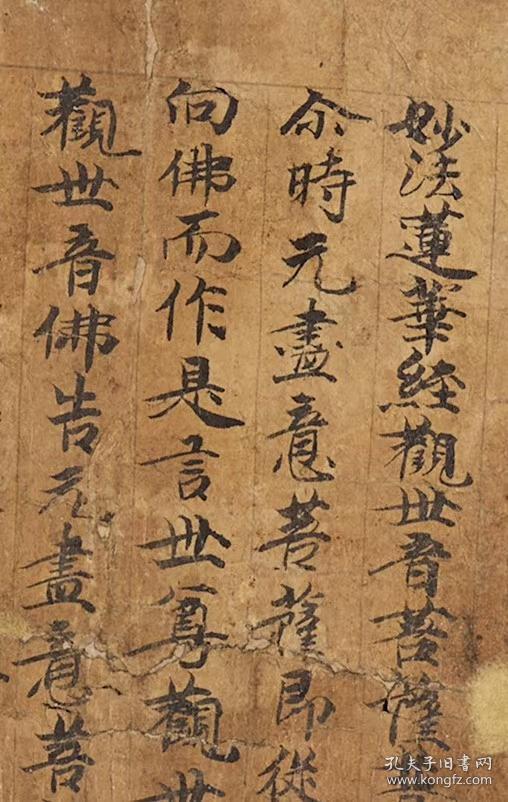 妙法蓮華經觀世音菩薩
尒時元盡意菩薩即從
向佛而作是言世尊觀世
觀世音佛告元盡意菩
孔夫子旧书网
www.kongfz.com